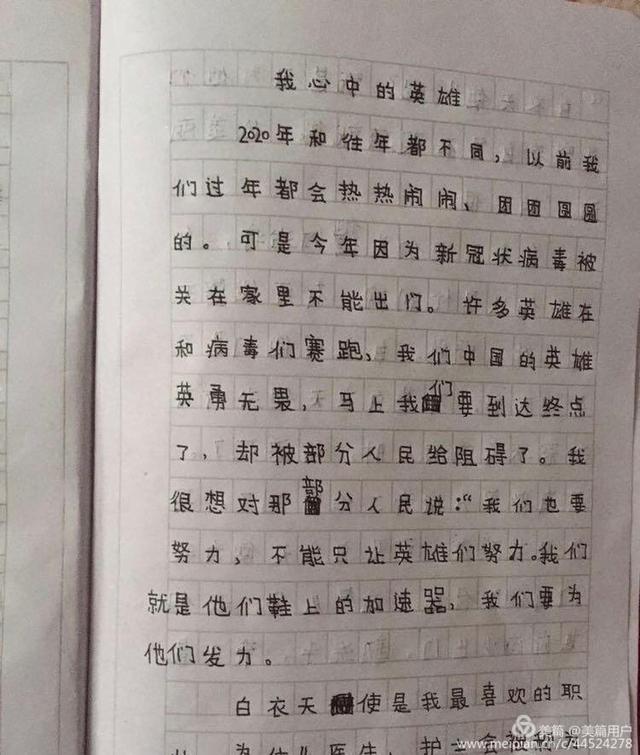 我心中的英雄
2020年和往年都不同，以前我
们过年都会热热闹闹、团团圆圆
的。可是今年因为新冠状病毒被
关在家里不能出门。许多英雄在
和病毒们赛跑、我们中国的英雄
英勇无畏，马上我们要到达终点
了，却被部分人民给阻碍了。我
很想对那部分人民说：“我们也要
努力，不能只让英雄们努力。我们
就是他们鞋上的加速器，我们要为
他们发力。
白衣天使是我最喜欢的职
美篇 @美篇用户
www.meipian.cn/c/44524278